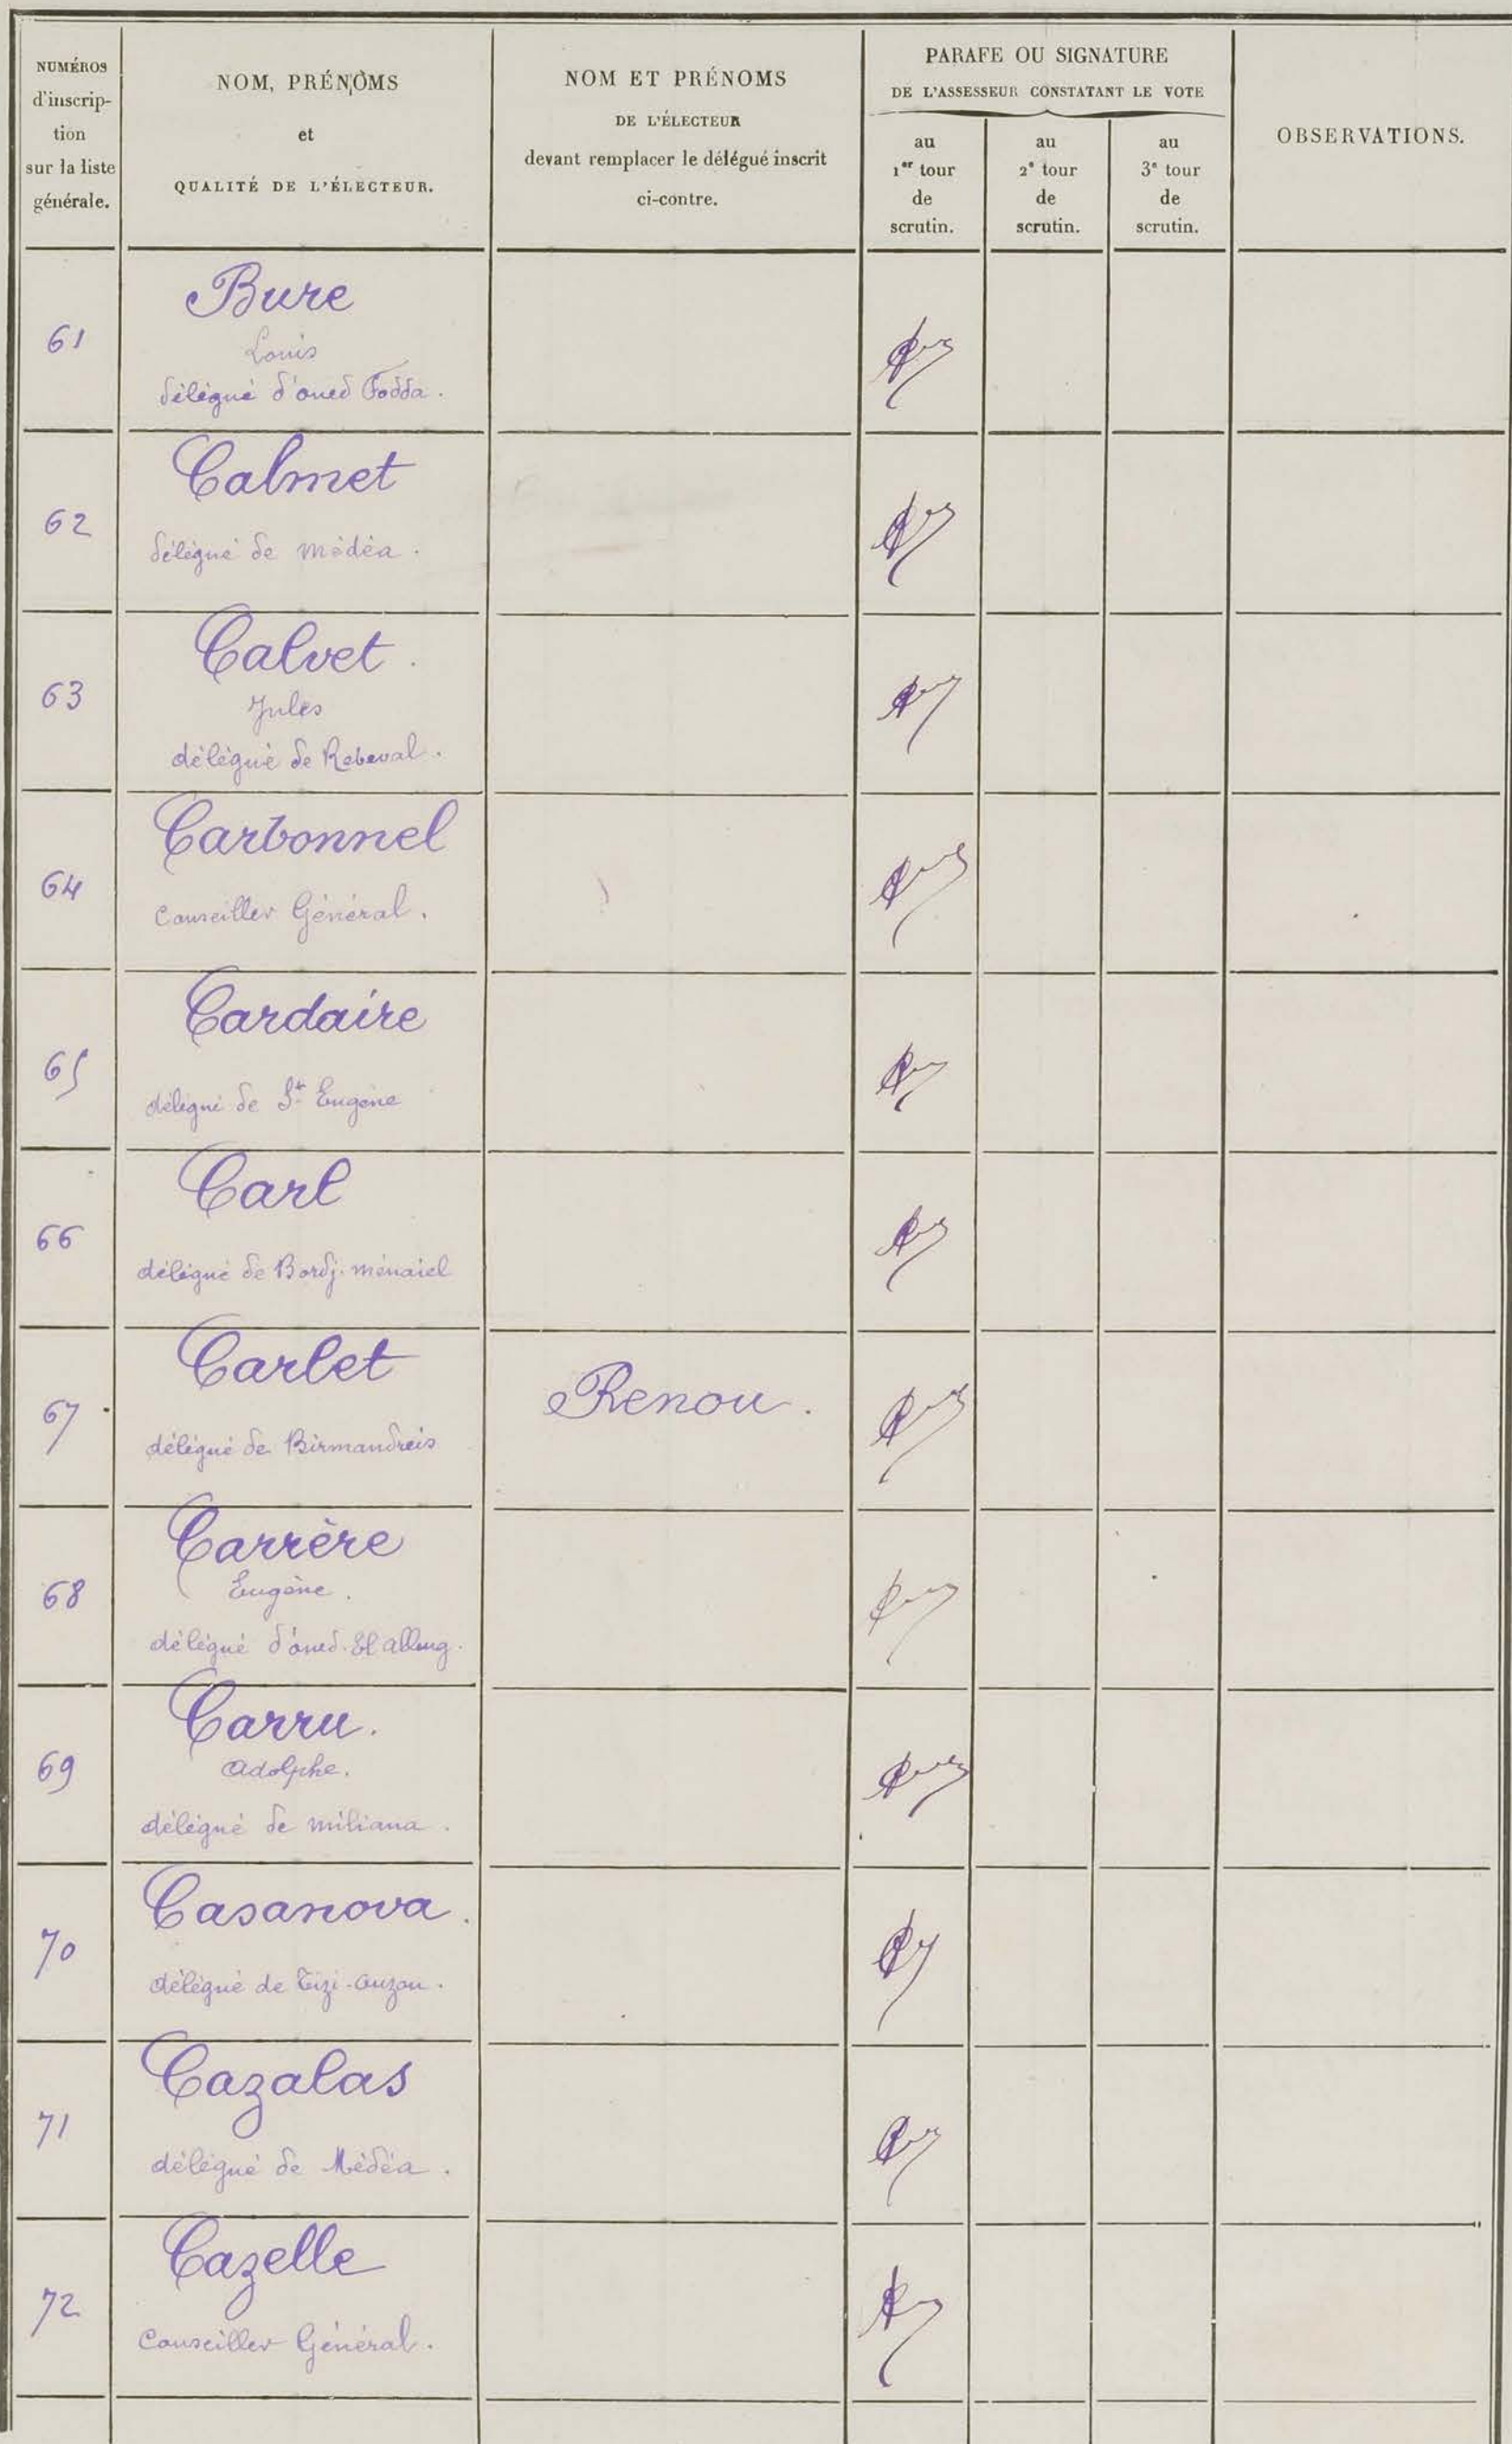 NUMÉROS
d'inscrip-
tion
sur la liste
générale.
NOM, PRÉNOMS
et
QUALITÉ DE L'ÉLECTEUR.
NOM ET PRÉNOMS
DE L'ÉLECTEUR
devant remplacer le délégué inscrit
ci-contre.
PARAFE OU SIGNATURE
DE L'ASSESSEUR CONSTATANT LE VOTE
au
1er tour
de
scrutin.
au
2e tour
de
scrutin.
au
3e tour
de
scrutin.
OBSERVATIONS.
61
Bure
Louis
délégué d'oued Fodda.
62
Calmet
délégué de médéa.
63
Calvet.
Jules
délégué de Rebeval.
64
Carbonnel
Conseiller Général.
65
Cardaire
délégué de St Eugène
66
Carl
délégué de Bordj-ménaiel
67
Carlet
délégué de Birmandreis
Renou.
68
Carrère
Eugène.
délégué d'oued-El alleug.
69
Carru.
adolphe.
délégué de miliana.
70
Casanova.
délégué de Tizi-ouzou.
71
Cazalas
délégué de Médéa.
72
Cazelle
Conseiller Général.